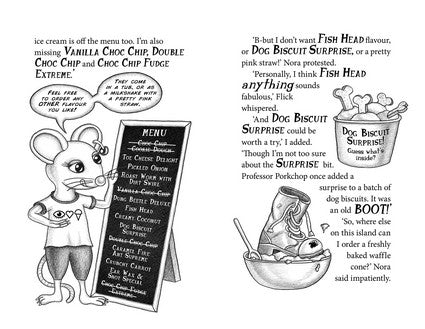 ice cream is off the menu too. I'm also
missing Vanilla Choc Chip, Double
Choc Chip and Choc Chip Fudge
Extreme.'
Feel free
to order any
other flavour
you like!
They come
in a tub, or as
a milkshake with
a pretty pink
straw.
Menu
Choc Chip
Cookie Dough
Toe Cheese Delight
Pickled Onion
Roast Worm with
Dirt Swirl
Vanilla Choc Chip
Dung Beetle Deluxe
Fish Head
Creamy Coconut
Dog Biscuit
Surprise
Double Choc Chip
Caramel Fire
Ant Supreme
Crunchy Carrot
Ear Wax &
Snot Special
Choc Chip Fudge
Extreme
'B-but I don't want Fish Head flavour,
or Dog Biscuit Surprise, or a pretty
pink straw!' Nora protested.
'Personally, I think Fish Head
anything sounds
fabulous,' Flick
whispered.
'And Dog Biscuit
Surprise could be
worth a try,' I added.
'Though I'm not too sure
about the Surprise bit.
Professor Porkchop once added a
surprise to a batch of
dog biscuits. It was
an old BOOT!'
'So, where else
on this island can
I order a freshly
baked waffle
cone?' Nora
said impatiently.
Dog Biscuit
Surprise!
Guess what's
inside?